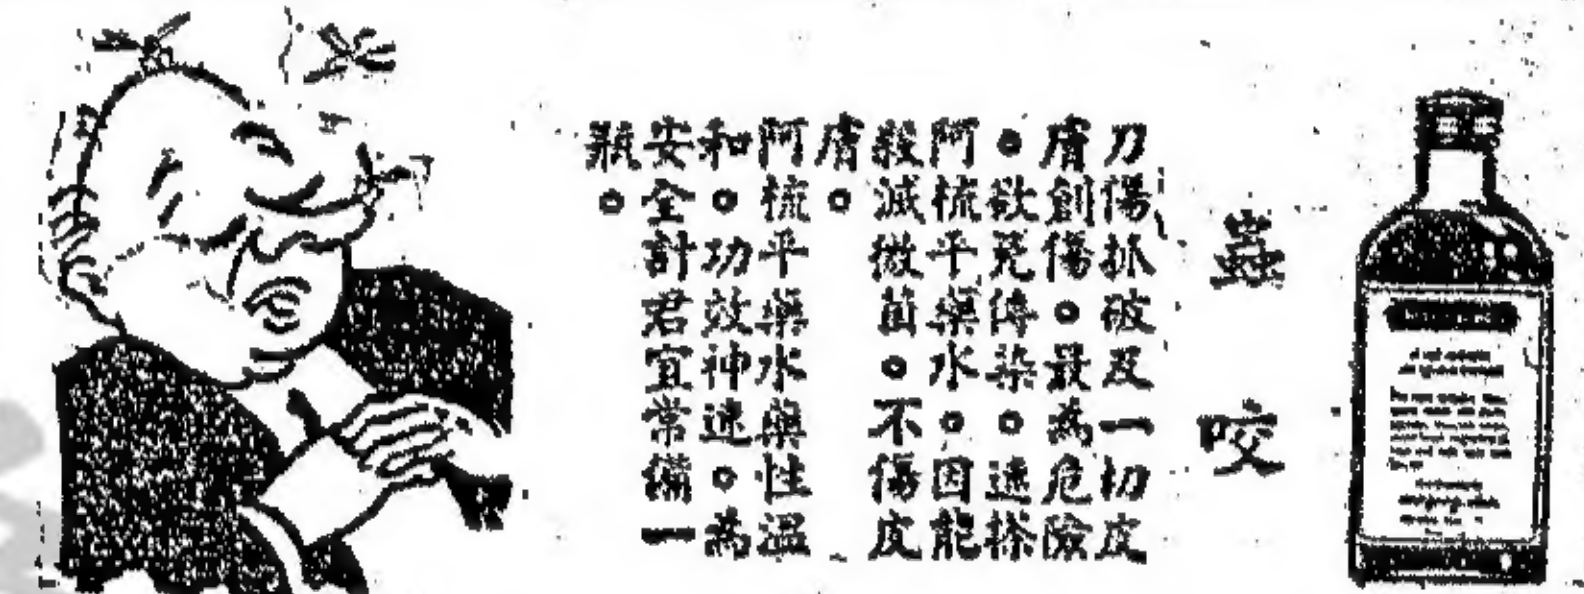 蟲咬
刀傷抓破及一切皮
膚創傷。最為危險
。欲免傳染。速搽
阿梳干藥水。因能
殺滅微菌。不傷皮
膚。
阿梳平藥水藥性溫
和。功效神速。為
安全計君宜常備一
瓶。